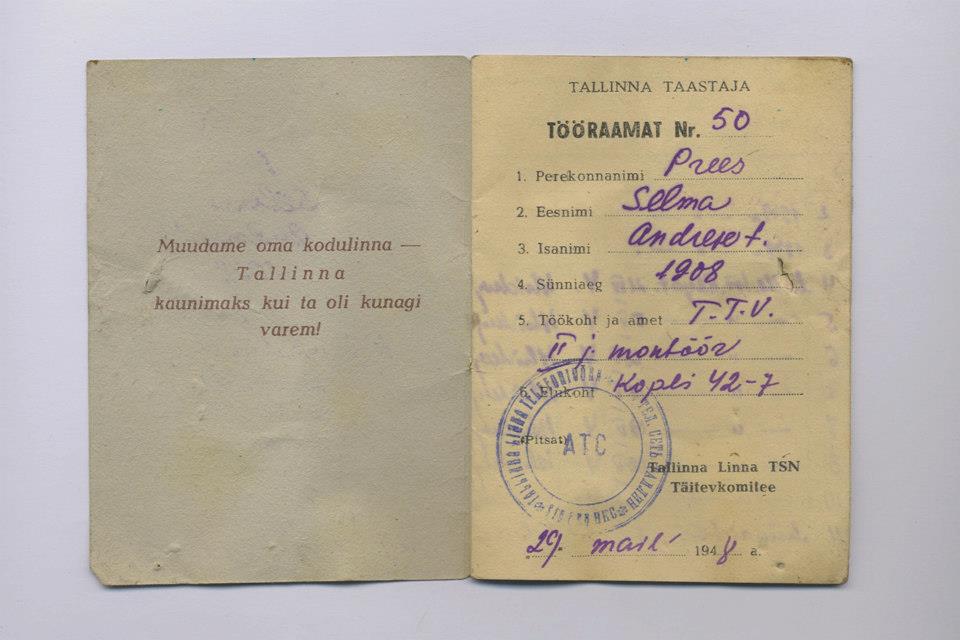 Muudame oma kodulinna —
Tallinna
kaunimaks kui ta oli kunagi
varem!
TALLINNA TAASTAJA
TÖÖRAAMAT Nr. 50
1. Perekonnanimi Prees
2. Eesnimi Selma
3. Isanimi
4. Sünniaeg 1908
5. Töökoht ja amet T.T.V.
II j. montöör
6. Elukoht Kopli 42-7
(Pitsat)
ATC
Tallinna Linna TSN
Täitevkomitee
29. mail 1948 a.